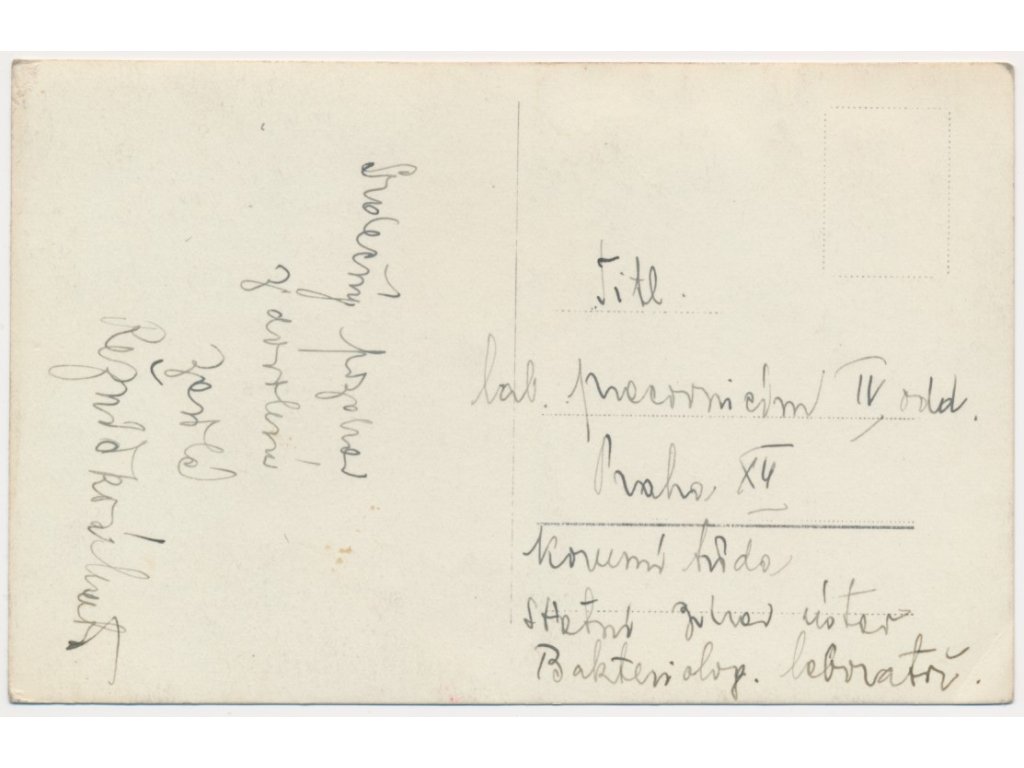 Srdečný pozdrav
z dovolené
zasílá
Titl.
lab. pracovnicím IV. odd.
Praha XII
Korunní třída
Státní zdrav ústav
Bakteriolog. laboratoř.